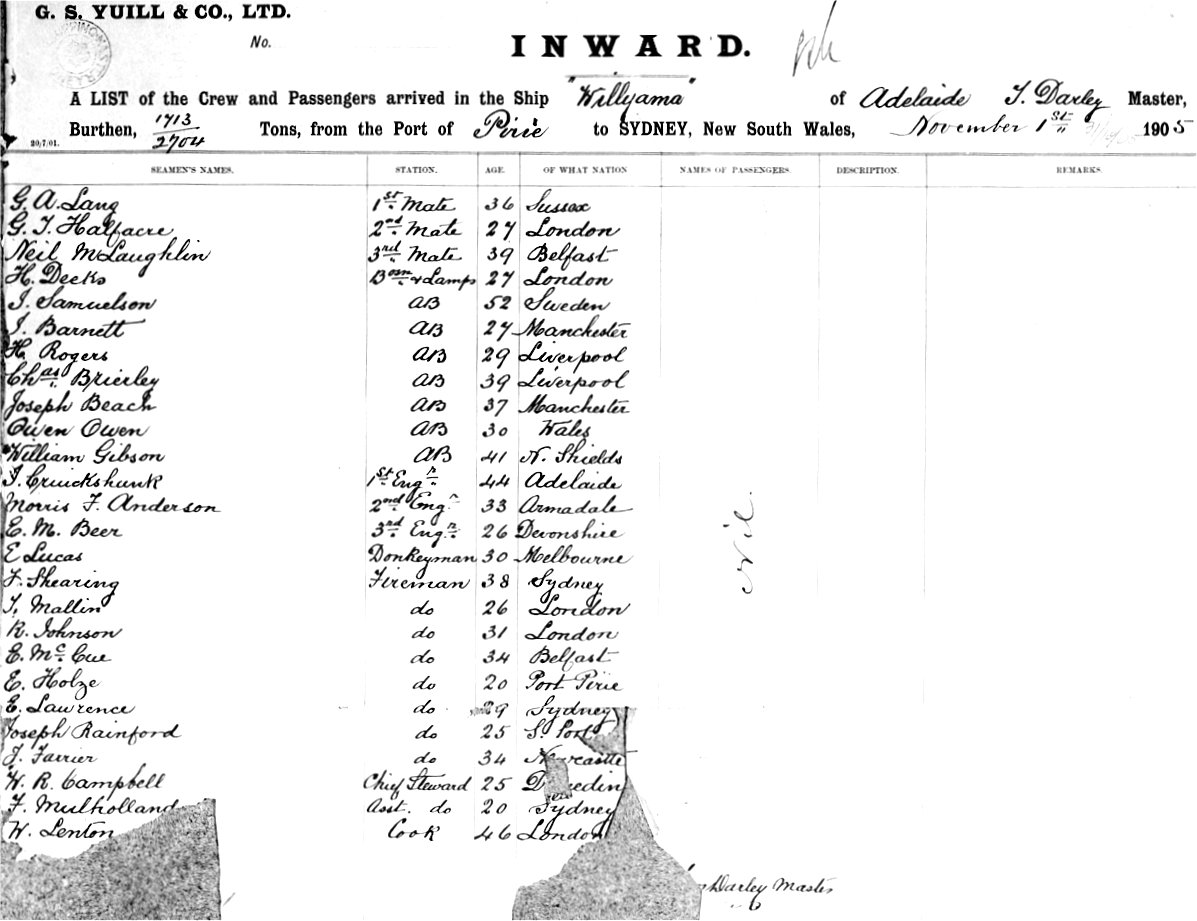 G. S. YUILL & CO., LTD.
No.
INWARD.
A LIST of the Crew and Passengers arrived in the Ship "Willyama" of Adelaide T. Darley Master,
Burthen, 1713/2704 Tons, from the Port of Pirie to SYDNEY, New South Wales, November 1st 1905
20/7/01.
SEAMEN'S NAMES. STATION. AGE. OF WHAT NATION NAMES OF PASSENGERS. DESCRIPTION. REMARKS.
G. A. Lang 1st Mate 36 Sussex
G. T. Halfacre 2nd Mate 27 London
Neil McLaughlin 3rd Mate 39 Belfast
H. Deeks Bosn & Lamps 27 London
J. Samuelson AB 52 Sweden
J. Barnett AB 27 Manchester
H. Rogers AB 29 Liverpool
Chas Brierley AB 39 Liverpool
Joseph Beach AB 37 Manchester
Owen Owen AB 30 Wales
William Gibson AB 41 N. Shields
J. Cruickshunk 1st Engr 44 Adelaide
Morris F. Anderson 2nd Engr 33 Armadale
E. M. Beer 3rd Engr. 26 Devonshire
E Lucas Donkeyman 30 Melbourne
F. Shearing Fireman 38 Sydney
T. Mallin do 26 London
R. Johnson do 31 London
E. McCue do 34 Belfast
E. Holze do 20 Port Pirie
E. Lawrence do 29 Sydney
Joseph Rainford do 25 S. Port
J. Farrier do 34 Newcastle
W. R. Campbell Chief Steward 25
F. Mulholland Asst. do 20 Sydney
W. Lenton Cook 46 London
Nil.
Darley Master